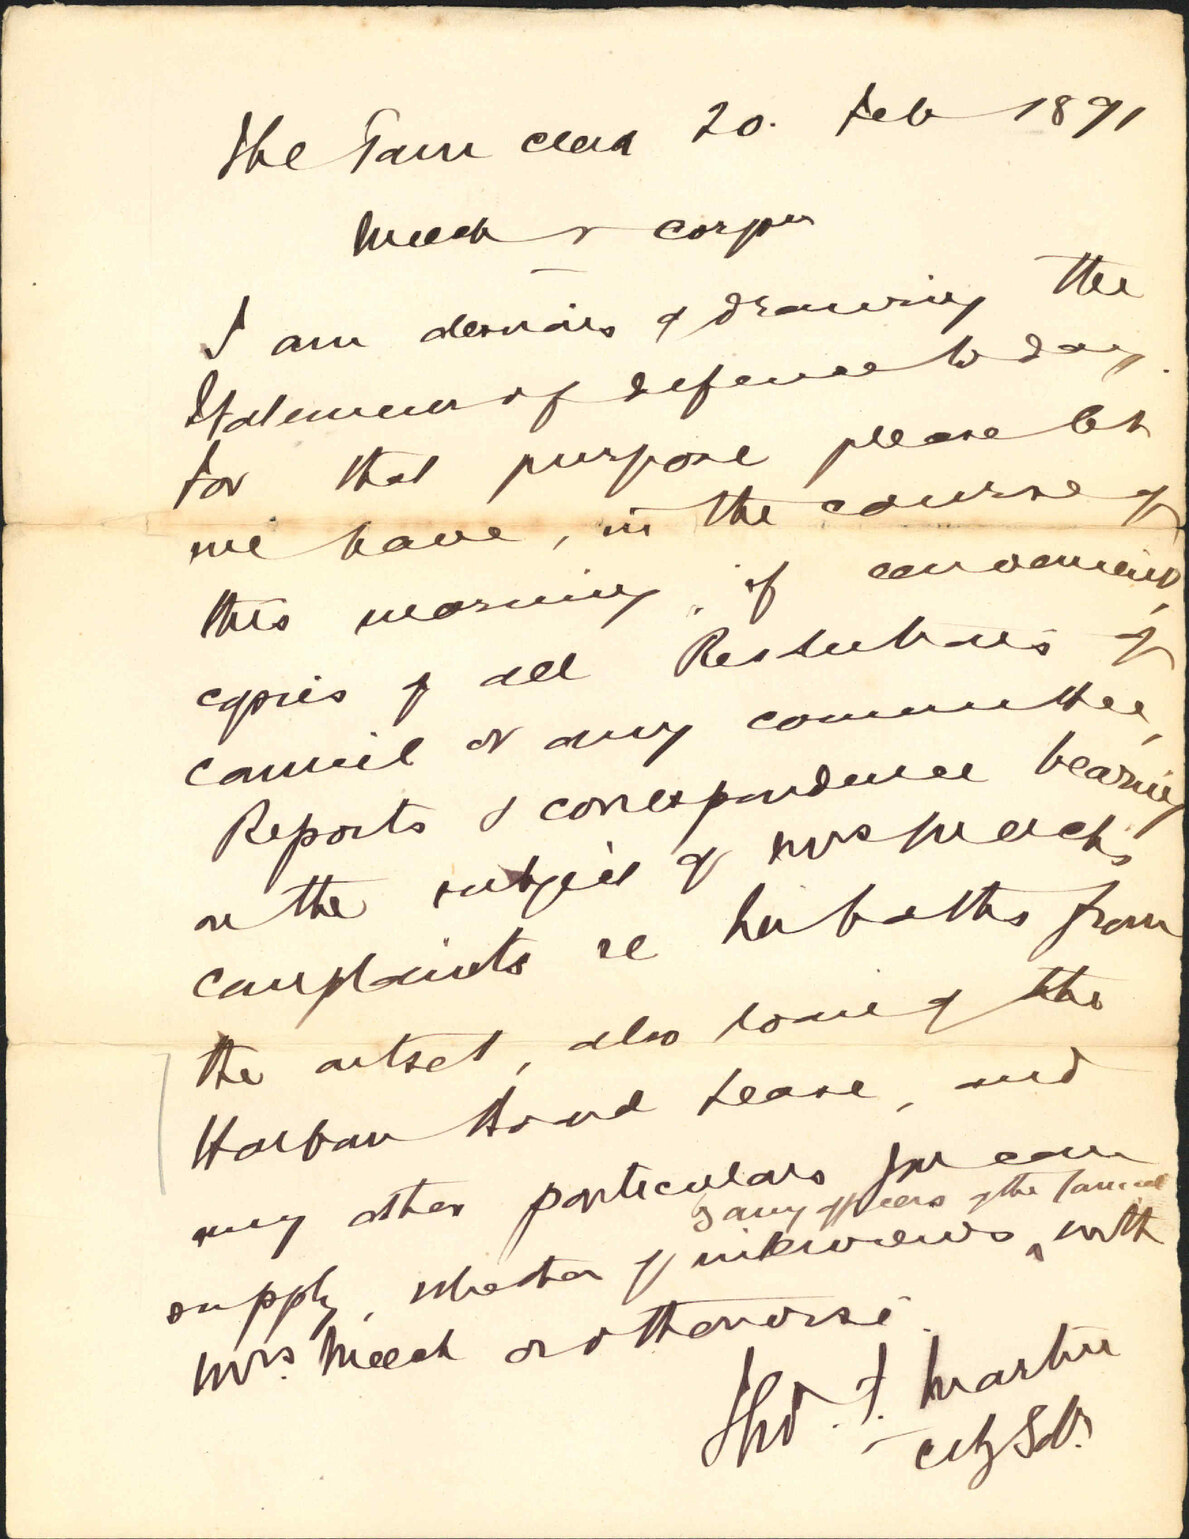 The Town Clerk 20. Feb 1891
Meech v Corpn
I am desirous of drawing the
Statement of defence to day.
For that purpose please let
me have, in the course of
this morning, if convenient,
copies of all Resolutions of
Council or any committee,
Reports & correspondence bearing
on the subject of Mrs Meech's
complaints re her baths from
the outset, also loan of the
Harbour Board Lease, and
any other particulars you can
supply, whether of interviews with
by any officers of the Council
Mrs. Meech or otherwise.
Thos. F. Martin
City Solr.